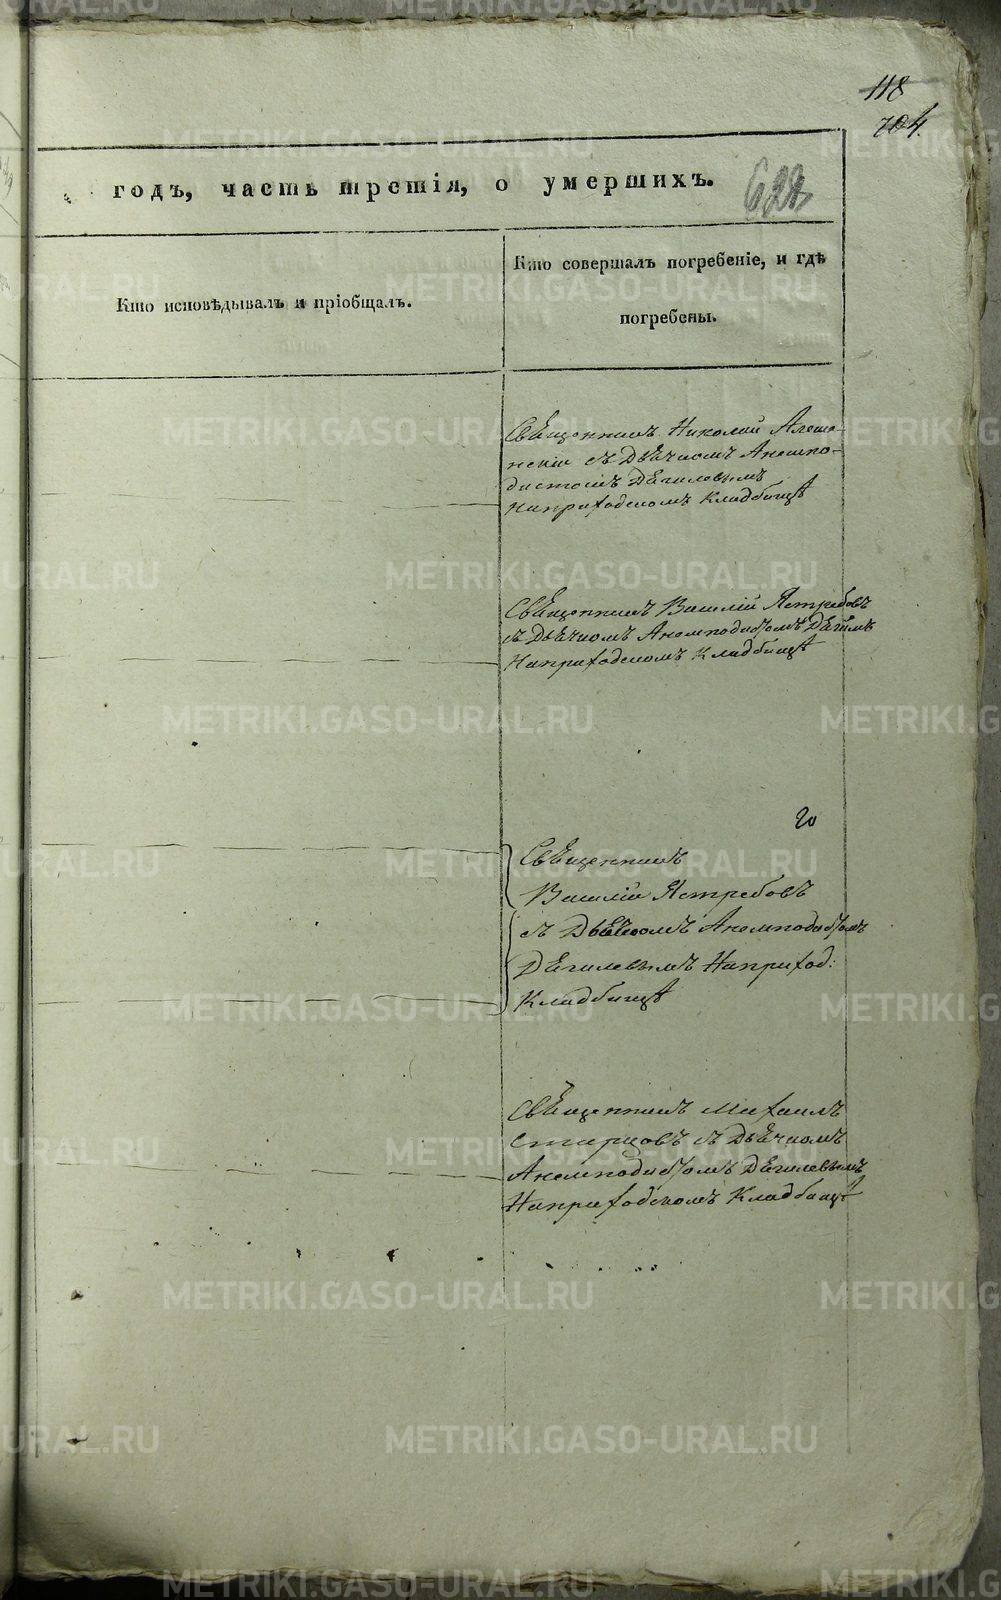 118
704.
годъ, часть третія, о умершихъ.
622
Кто исповѣдывалъ и пріобщалъ.
Кто совершалъ погребеніе, и гдѣ
погребены.
Священникъ Николай
съ Дьячкомъ Анемпо-
дистомъ Дѣгилевымъ
Наприходскомъ Кладбищѣ
Священникъ Василій Ястребовъ
съ Дьячкомъ Анемподистомъ
Наприходскомъ Кладбищѣ
20
Священникъ
Василій Ястребовъ
съ Дьячкомъ Анемподистомъ
Дѣгилевымъ Наприход:
Кладбищѣ
Священникъ Михаилъ
Старцовъ съ Дьячкомъ
Анемподистомъ Дѣгилевымъ
Наприходскомъ Кладбищѣ
METRIKI.GASO-URAL.RU